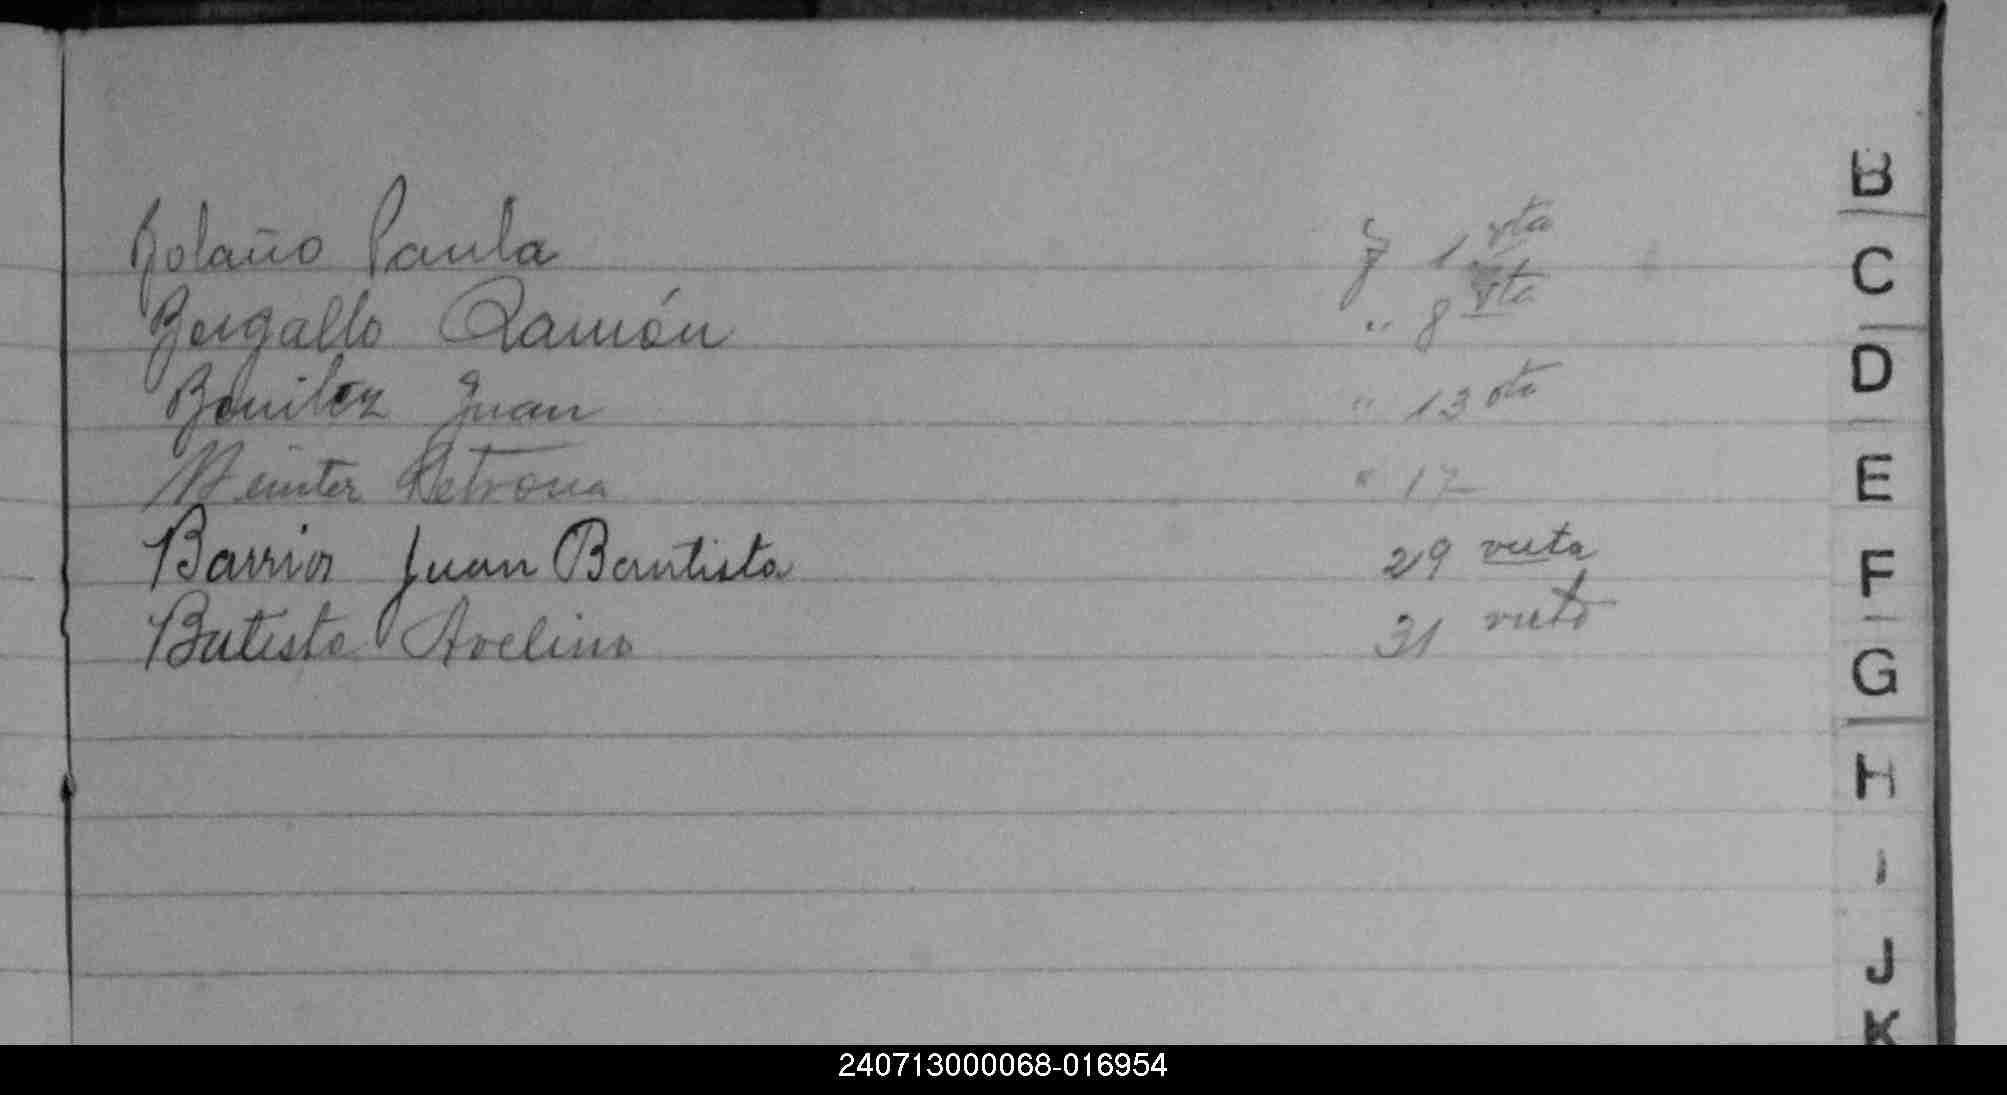 Bolaño Paula f 1 vta
Bergallo Ramón " 8 vta
Benitez Juan " 13 vta
Petrona " 17
Barrios Juan Bautista 29 vuta
Batista Avelino 31 vuta
B
C
D
E
F
G
H
I
J
K
240713000068-016954